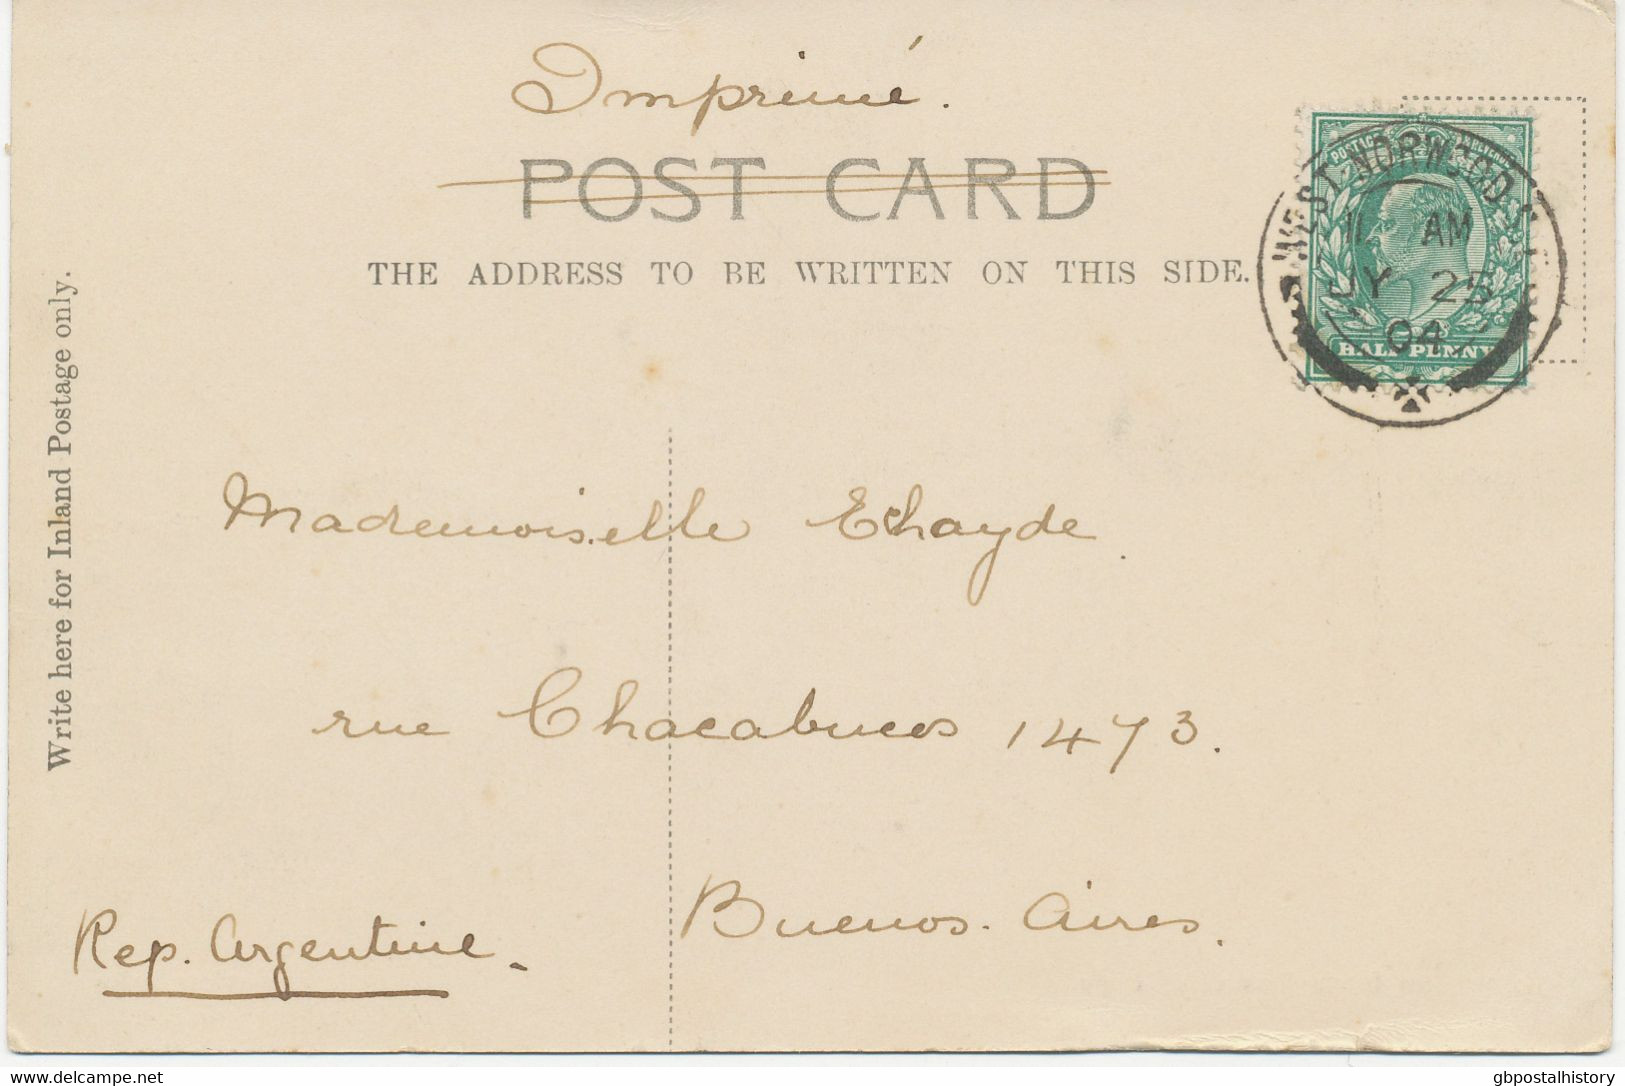 Imprimé.
POST CARD
THE ADDRESS TO BE WRITTEN ON THIS SIDE.
POSTAGE REVENUE
WEST NORWOOD S.E.
11 AM
JY 25
04
HALFPENNY
Write here for Inland Postage only.
Mademoiselle Echayde.
rue Chacabucos 1473.
Buenos. Aires.
Rep. Argentine.
© for delcampe.net
gbpostalhistory